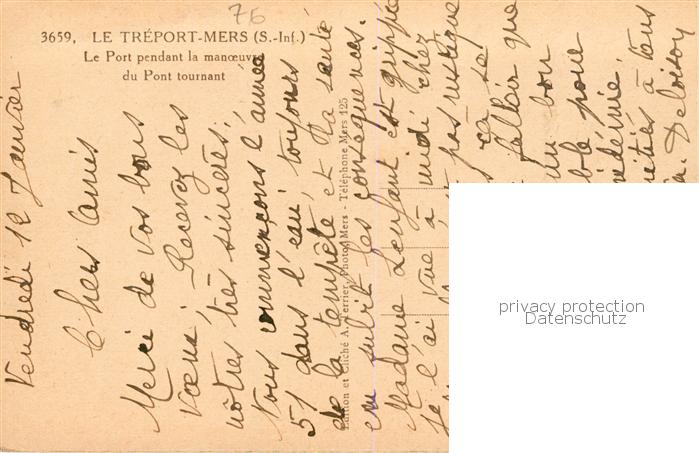 76
3659, LE TRÉPORT-MERS (S.-Inf.)
Le Port pendant la manœuvre
du Pont tournant
Edition et Cliché A. Terrier, Photo, Mers - Téléphone Mers 125
Vendredi 12 Janvier
Chers Amis
Merci de vos bons
vœux, Recevez les
nôtres très sincères.
Nous commençons l'année
51 dans l'eau, toujours
de la tempête, et la santé
en subit les conséquences.
Madame Lenfant est grippée
je l'ai vue à midi chez
pas rustique
ça se
falloir que
un bon
ble pour
à tous
Deloison
privacy protection
Datenschutz